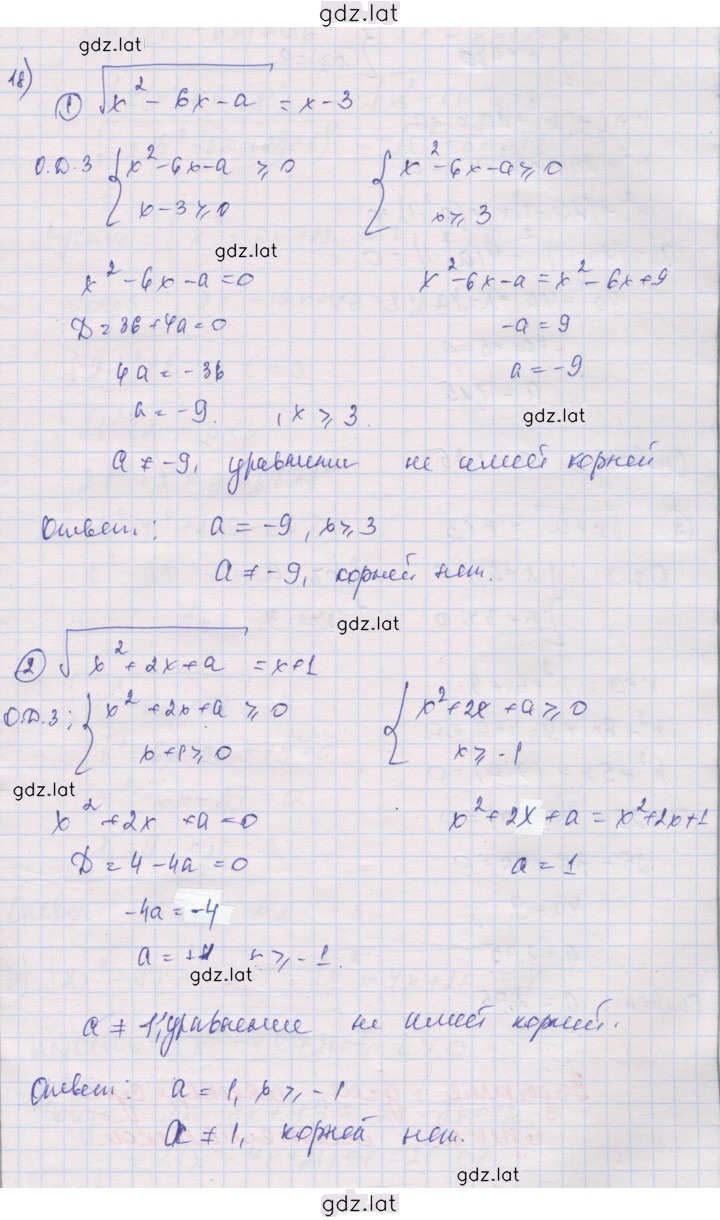 gdz.lat
gdz.lat
18)
① √x² - 6x - a = x - 3
О.Д.З { x² - 6x - a ⩾ 0 { x² - 6x - a ⩾ 0
x - 3 ⩾ 0 x ⩾ 3
gdz.lat
x² - 6x - a = 0 x² - 6x - a = x² - 6x + 9
D = 36 + 4a = 0 -a = 9
4a = -36 a = -9
a = -9. , x ⩾ 3.
gdz.lat
a ≠ -9, уравнение не имеет корней
Ответ: a = -9, x ⩾ 3
a ≠ -9, корней нет.
gdz.lat
② √x² + 2x + a = x + 1
О.Д.З; { x² + 2x + a ⩾ 0 { x² + 2x + a ⩾ 0
x + 1 ⩾ 0 x ⩾ -1
gdz.lat
x² + 2x + a = 0 x² + 2x + a = x² + 2x + 1
D = 4 - 4a = 0 a = 1
-4a = -4
a = +1 x ⩾ -1.
gdz.lat
a ≠ 1, уравнение не имеет корней.
Ответ: a = 1, x ⩾ -1
a ≠ 1, корней нет.
gdz.lat
gdz.lat